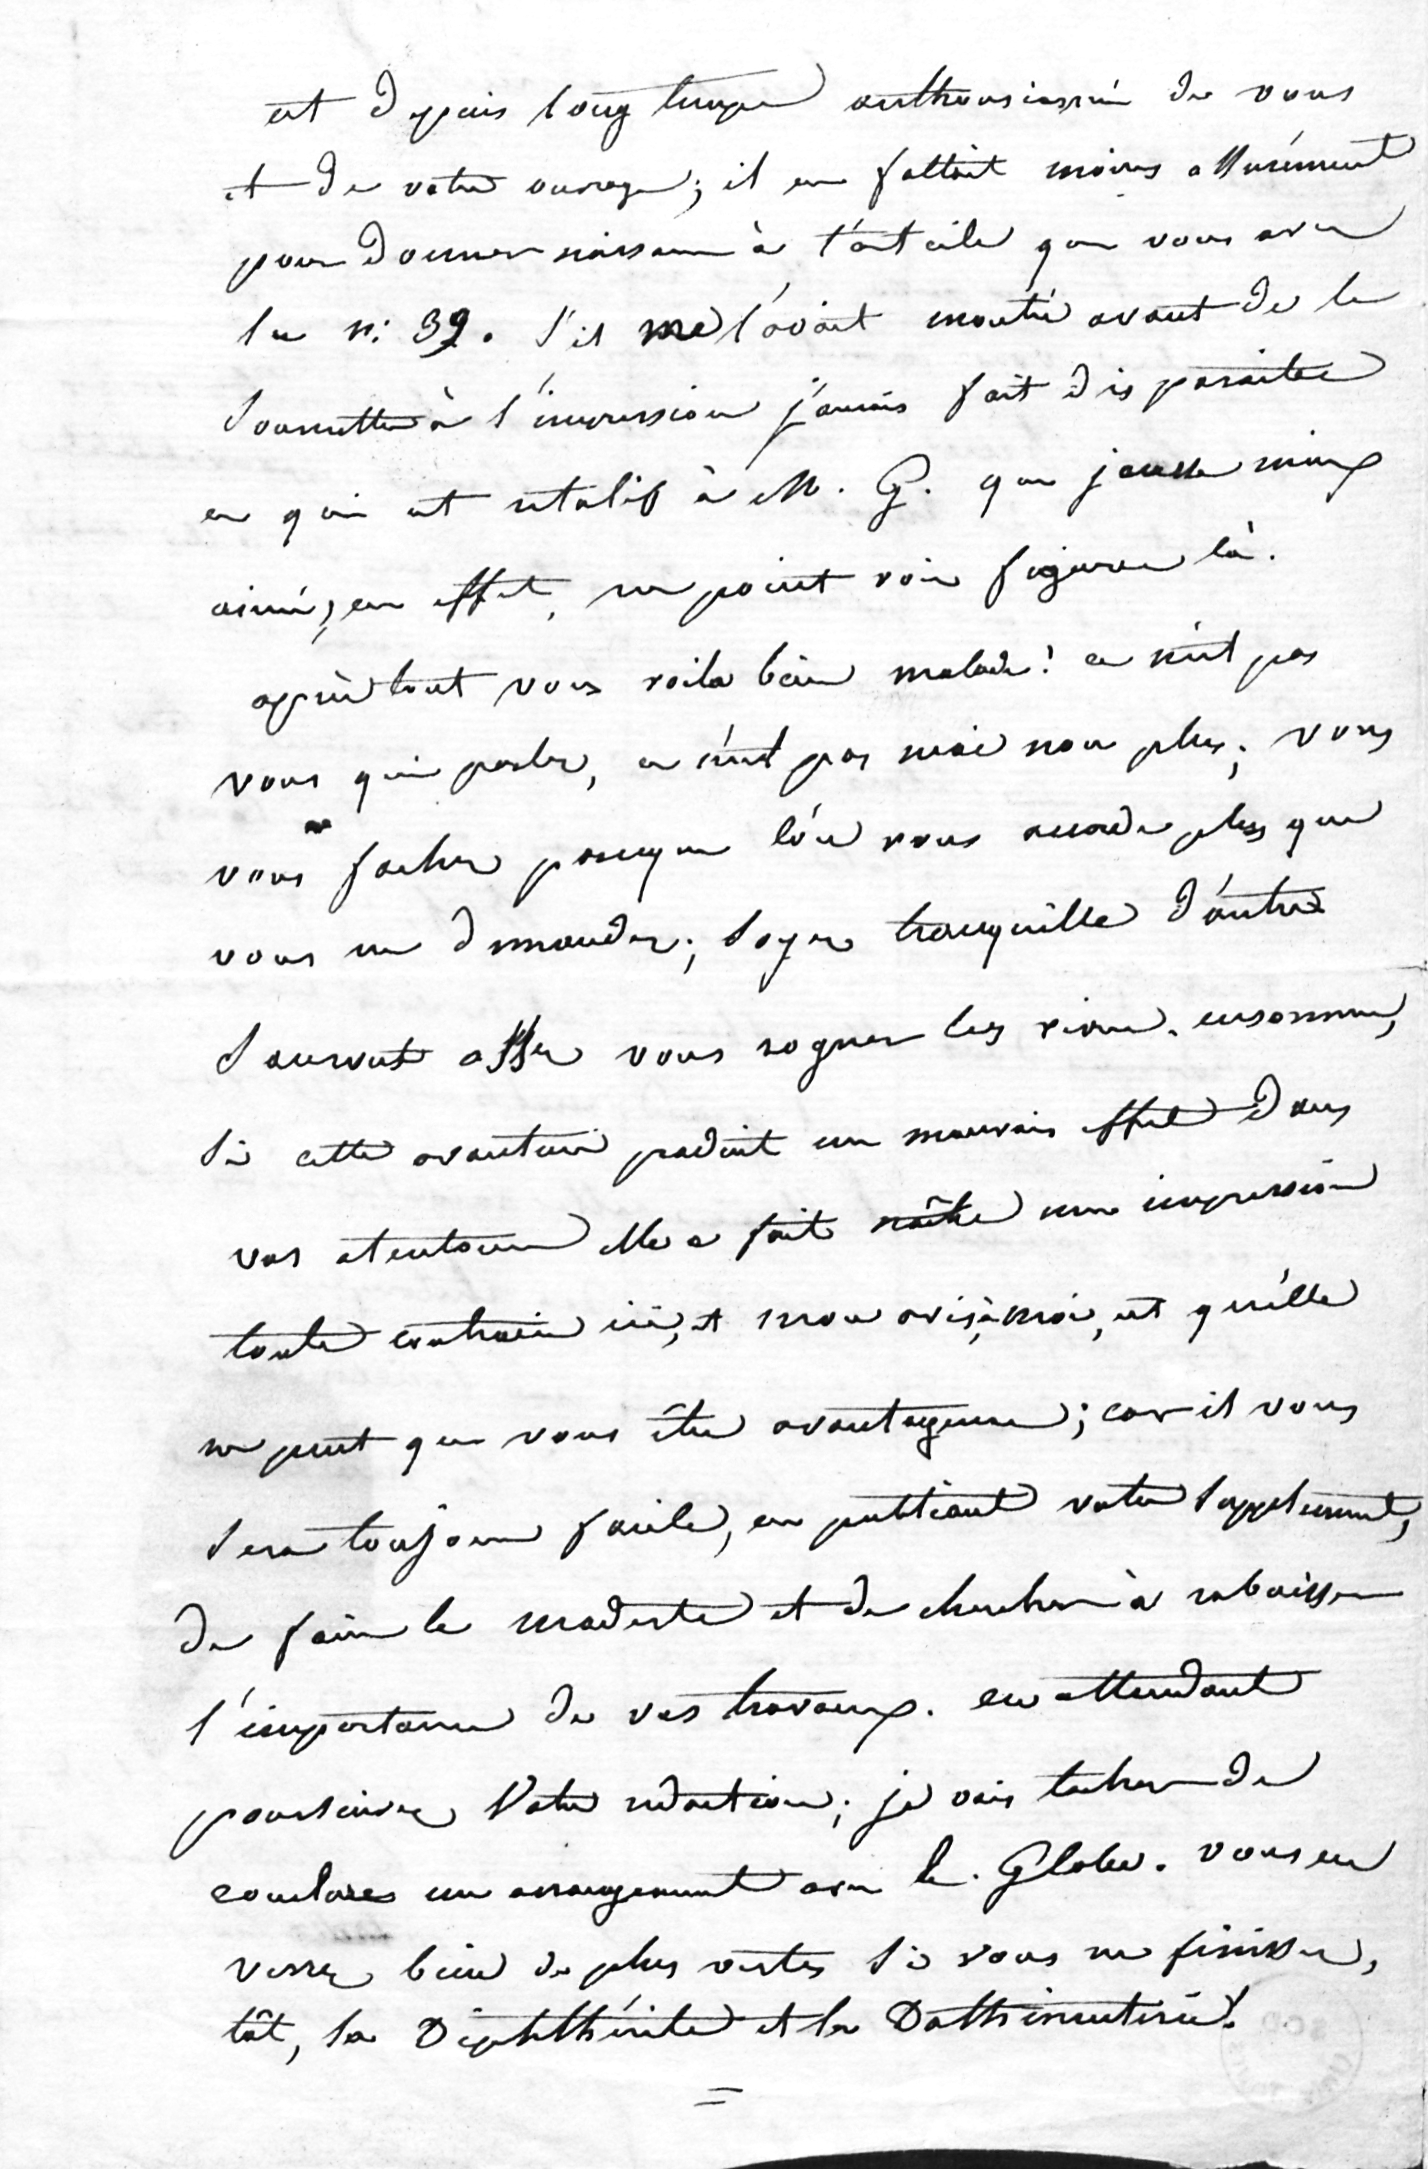 est depuis long temps enthousiasmé de vous
et de votre ouvrage; il en fallait moins assurément
pour donner naissance à l'article que vous avez
lu n: 39. S'il me l'avait montré avant de le
soumettre à l'impression j'aurais fait disparaitre
ce qui est relatif à M. G. que jeusse mieux
aimé, en effet, ne point voir figurer là.
après tout vous voila bien malade! ce n'est pas
vous qui parlez, ce n'est pas moi non plus; vous
vous fachez parceque l'on vous accorde plus que
vous ne demandez; soyez tranquille d'autres
sauront assez vous rogner les . ensomme,
si cette avanture produit un mauvais effet dans
vos alentours elle a fait naître une impression
toute contraire ici, et mon avis, à moi, est qu'elle
ne peut que vous être avantageuse; car il vous
sera toujours facile, en publiant votre supplement,
de faire le modeste et de chercher à rabaisser
l'importance de vos travaux. en attendant
poursuivez votre rédaction; je vais tacher de
conclure un arrangement avec le Globe. vous en
verrez bien de plus vertes si vous ne finissez,
tôt, la Diphthérite et la Dothinenterie!